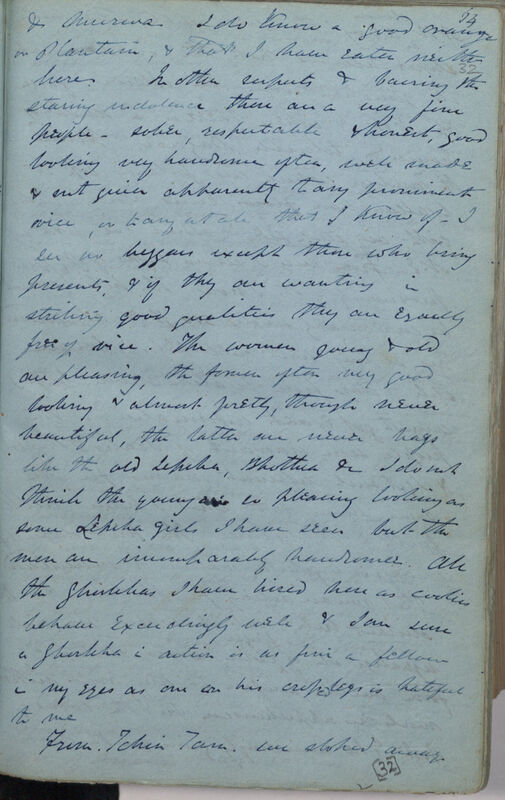 54
& America I do know a good orange
32
or Plantain, & that I have eaten neither
here. In other respects & barring the
staring indolence there are a very fine
people - sober, respectable & honest, good
looking very handsome often, well made
& not given apparently to any prominent
vice, or to any at all that I know of - I
see no beggars except those who bring
presents, & if they are wanting in
striking good qualities they are equally
free of vice. The women young & old
are pleasing, the former often very good
looking & almost pretty, though never
beautiful, the latter are never hags
like the old Lepcha, Bhottea &c I do not
think the young so pleasing looking as
some Lepcha girls I have seen but the
men are incomparably handsomer. All
the Ghorkhas I have hired here as coolies
behave exceedingly well & I am sure
a Ghorkha in action is as fine a fellow
in my eyes as one on his legs is hateful
to me
From Tchin Tam we sloped away
32